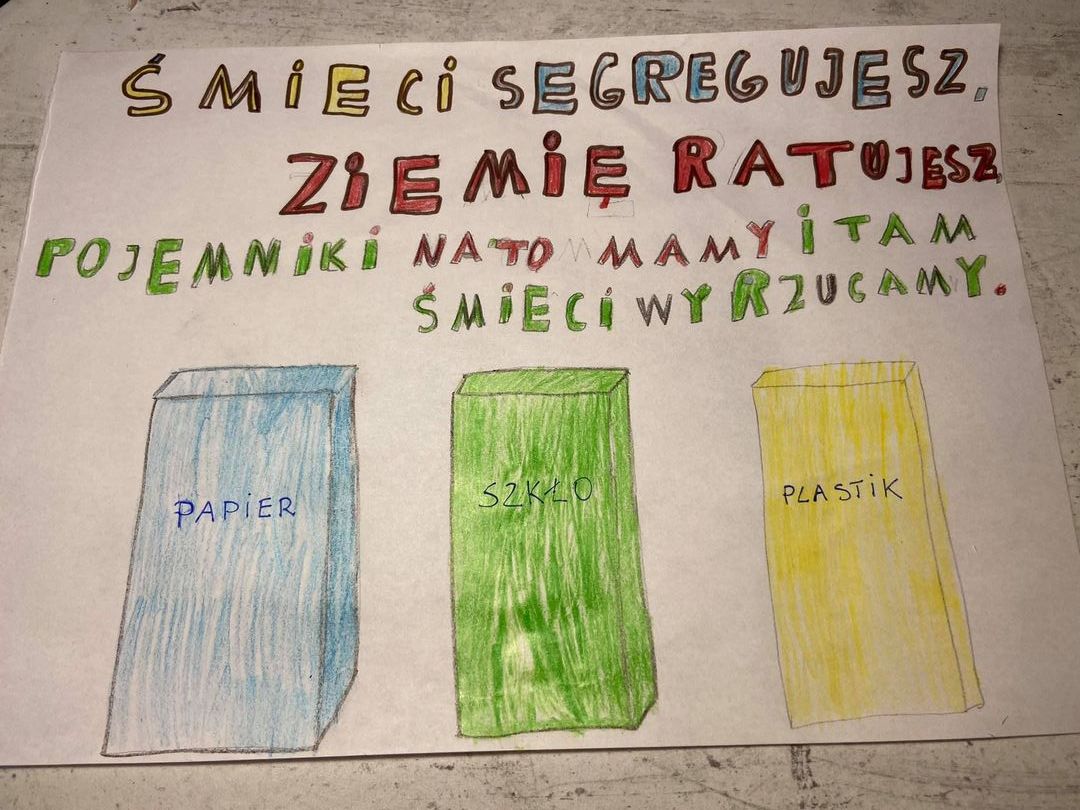 ŚMiECi SEGREGUJESZ,
ZiEMiĘ RATUJESZ,
POJEMNiKi NA TO MAMY i TAM
ŚMiECi WYRZUCAMY.
PAPiER
SZKŁO
PLASTiK